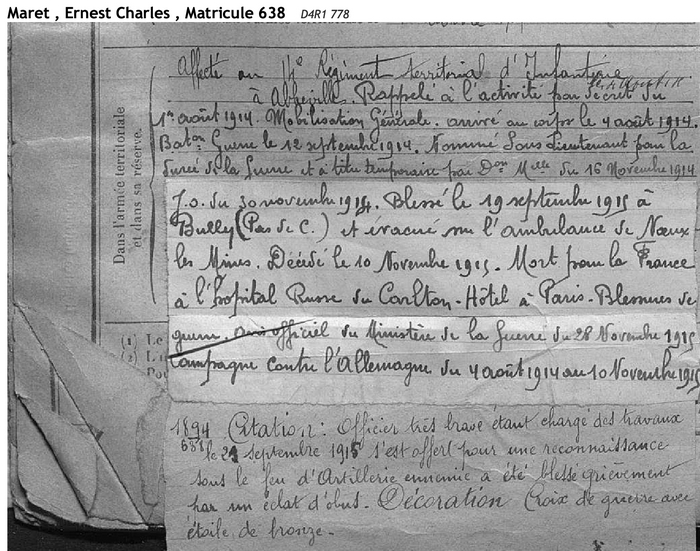 Maret , Ernest Charles , Matricule 638 D4R1 778
Affecté au 14e Régiment territorial d'Infanterie
à Abbeville. Rappelé à l'activité par décret du
1er août 1914. Mobilisation Générale. arrivé au corps le 4 août 1914.
Baton Guerre le 12 septembre 1914. Nommé Sous Lieutenant pour la
durée de la Guerre et à titre temporaire par Don Mlle du 16 Novembre 1914
J.O. du 30 novembre 1914. Blessé le 19 septembre 1915 à
Bully (Pas de C.) et évacué sur l'ambulance de Nœux
les Mines. Décédé le 10 Novembre 1915. Mort pour la France
à l'hôpital Russe du Carlton-Hôtel à Paris. Blessures de
guerre. avis officiel du Ministère de la Guerre du 28 Novembre 1915
Campagne contre l'Allemagne du 4 août 1914 au 10 Novembre 1915
1894 Citation: Officier très brave étant chargé des travaux
le septembre 1915 s'est offert pour une reconnaissance
sous le feu d'Artillerie ennemie a été blessé grièvement
par un éclat d'obus. Décoration Croix de guerre avec
étoile de bronze.
Dans l'armée territoriale
et dans sa réserve.
(1) Le
(2) L'i
Pou